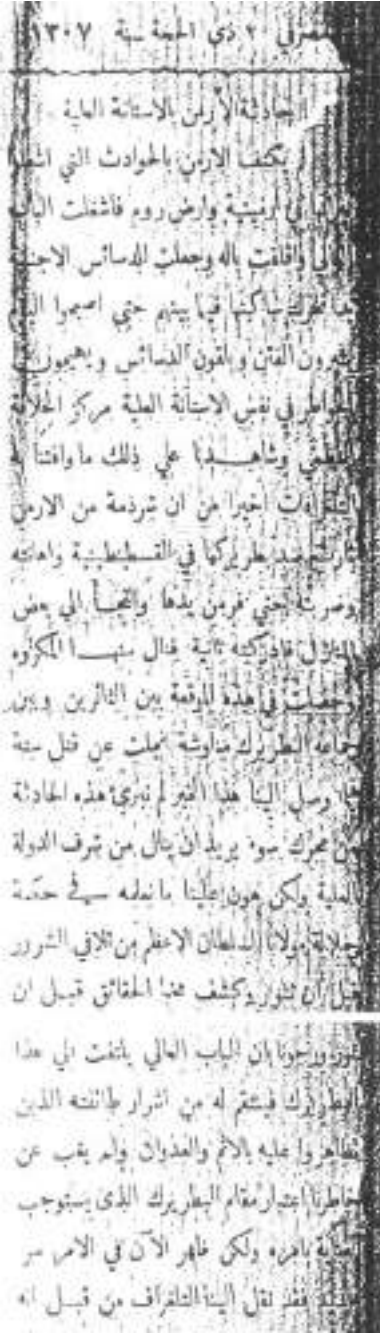 ٢٠ ذي الحجة سنة ١٣٠٧
حادثة الأرمن بالاستانة العلية
لم يكتف الارمن بالحوادث التي
في ارمينية وارض روم فاشغلت الباب
العالي واقلقت باله وجعلت للدسائس
ساكنها فيما بينهم حتي اصبحوا
يثيرون الفتن ويلقون الدسائس ويهيجون
الخواطر في نفس الاستانة العلية مركز الخلافة
العظمي وشاهدنا علي ذلك ما وافتنا به
التلغرافات اخيرا من ان شرذمة من الارمن
ثارت ضد بطريركها في القسطنطينية واهانته
وضربته حتي فر من يدها والتجأ الي بعض
المنازل فادركته ثانية فنال منها المكروه
وحصلت في هذه الموقعة بين الثائرين وبين
جماعة البطريرك مناوشة انجلت عن قتل ستة
وصل الينا هذا الخبر لم نبرئ هذه الحادثة
من محرك سوء يريد ان ينال من شرف الدولة
العلية ولكن هون علينا ما نعلمه في حكمة
جلالة مولانا السلطان الاعظم من تلافي الشرور
قبل أن تثور وكشف مخبا الحقائق قبل ان
ورجونا بان الباب العالي يلتفت الي هذا
البطريرك فينتقم له من اشرار طائفته الذين
تظاهروا عليه بالاثم والعدوان ولم يغب عن
خاطرنا اعتبار مقام البطريرك الذي يستوجب
العناية بامره ولكن ظهر الآن في الامر سر
فقد نقل الينا التلغراف من قبل انه